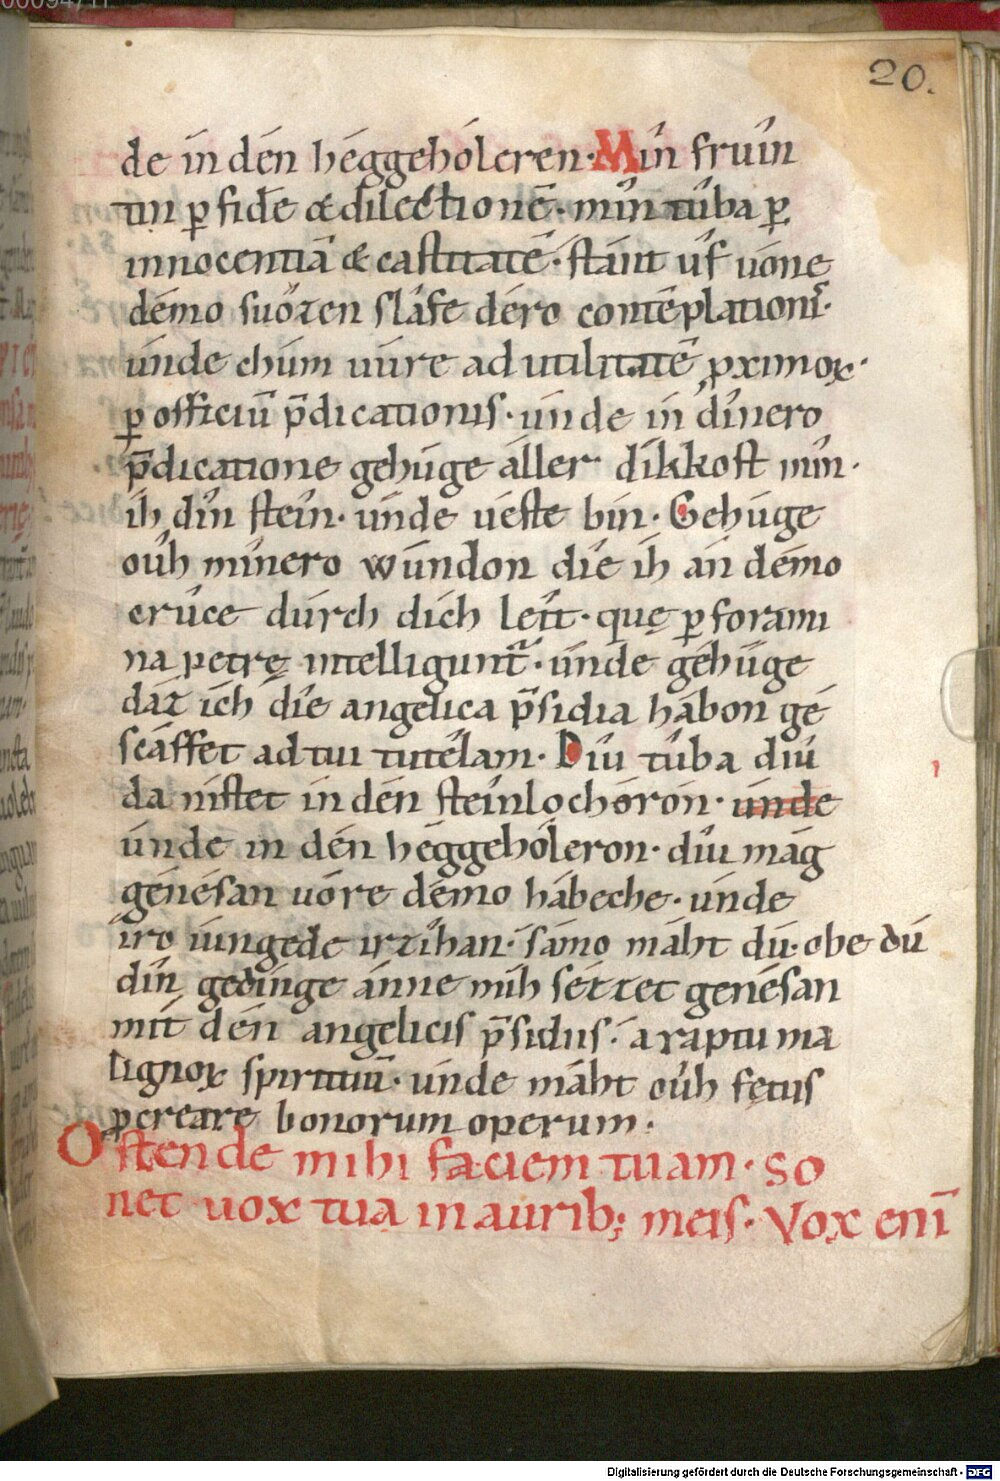 20.
de ín dén héggehóleren· Mín fruín
tin ꝑ fidē & dilectionē· mín tûba ꝑ
innocentiā & castitatē· stánt ûf uóne
démo suózen slâfe déro contēplationis·
únde chúm uúre ad utilitatē ꝓximoꝝ·
ꝑ officiū p̄dicationis· únde in dínero
p̄dicatione gehúge áller dikkost mín·
íh dín stein· únde uéste bin· Gehúge
oûh mínero wúndon díe ih án démo
cruce dúrch dich leít· quę ꝑ forami
na petrę intelligunt᷑· únde gehúge
dáz ích díe angelica p̄sidia hábon ge
scáffet ad tui tutélam· Díu tûba díu
da nistet in dén steinlochoron· únde
únde in dén héggehóleron· díu mág
genésan uóre démo hábeche· únde
íro iungede irzíhan· sámo máht dú· obe dú
dín gedínge ánne míh sézzet genésan
mít dén angelicis p̄sidiis· á raptu ma
lignoꝝ spirituū· únde máht oûh fętus
ꝓcreare bonorum operum·
Ostende mihi faciem tuam· so
net uox tua in aurib; meis· Vox enī
Digitalisierung gefördert durch die Deutsche Forschungsgemeinschaft - DFG